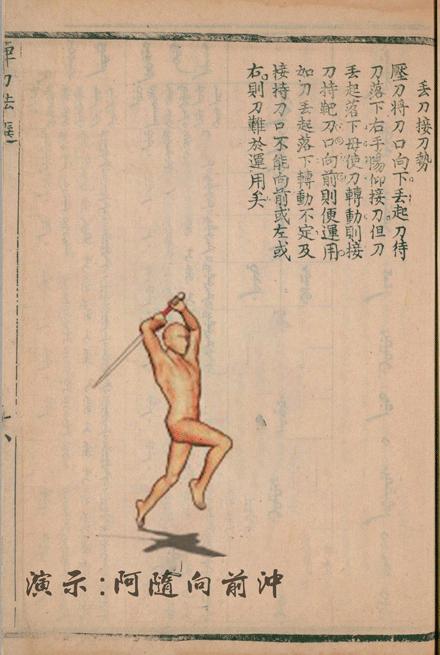 丟刀接刀勢
壓刀將刀口向下丟起刀待
刀落下右手陽仰接刀但刀
丟起落下毋使刀轉動則接
刀持靶刀口向前則便運用
如刀丟起落下轉動不定及
接持刀口不能向前或左或
右則刀難於運用矣
單刀法選
演示:阿隨向前沖